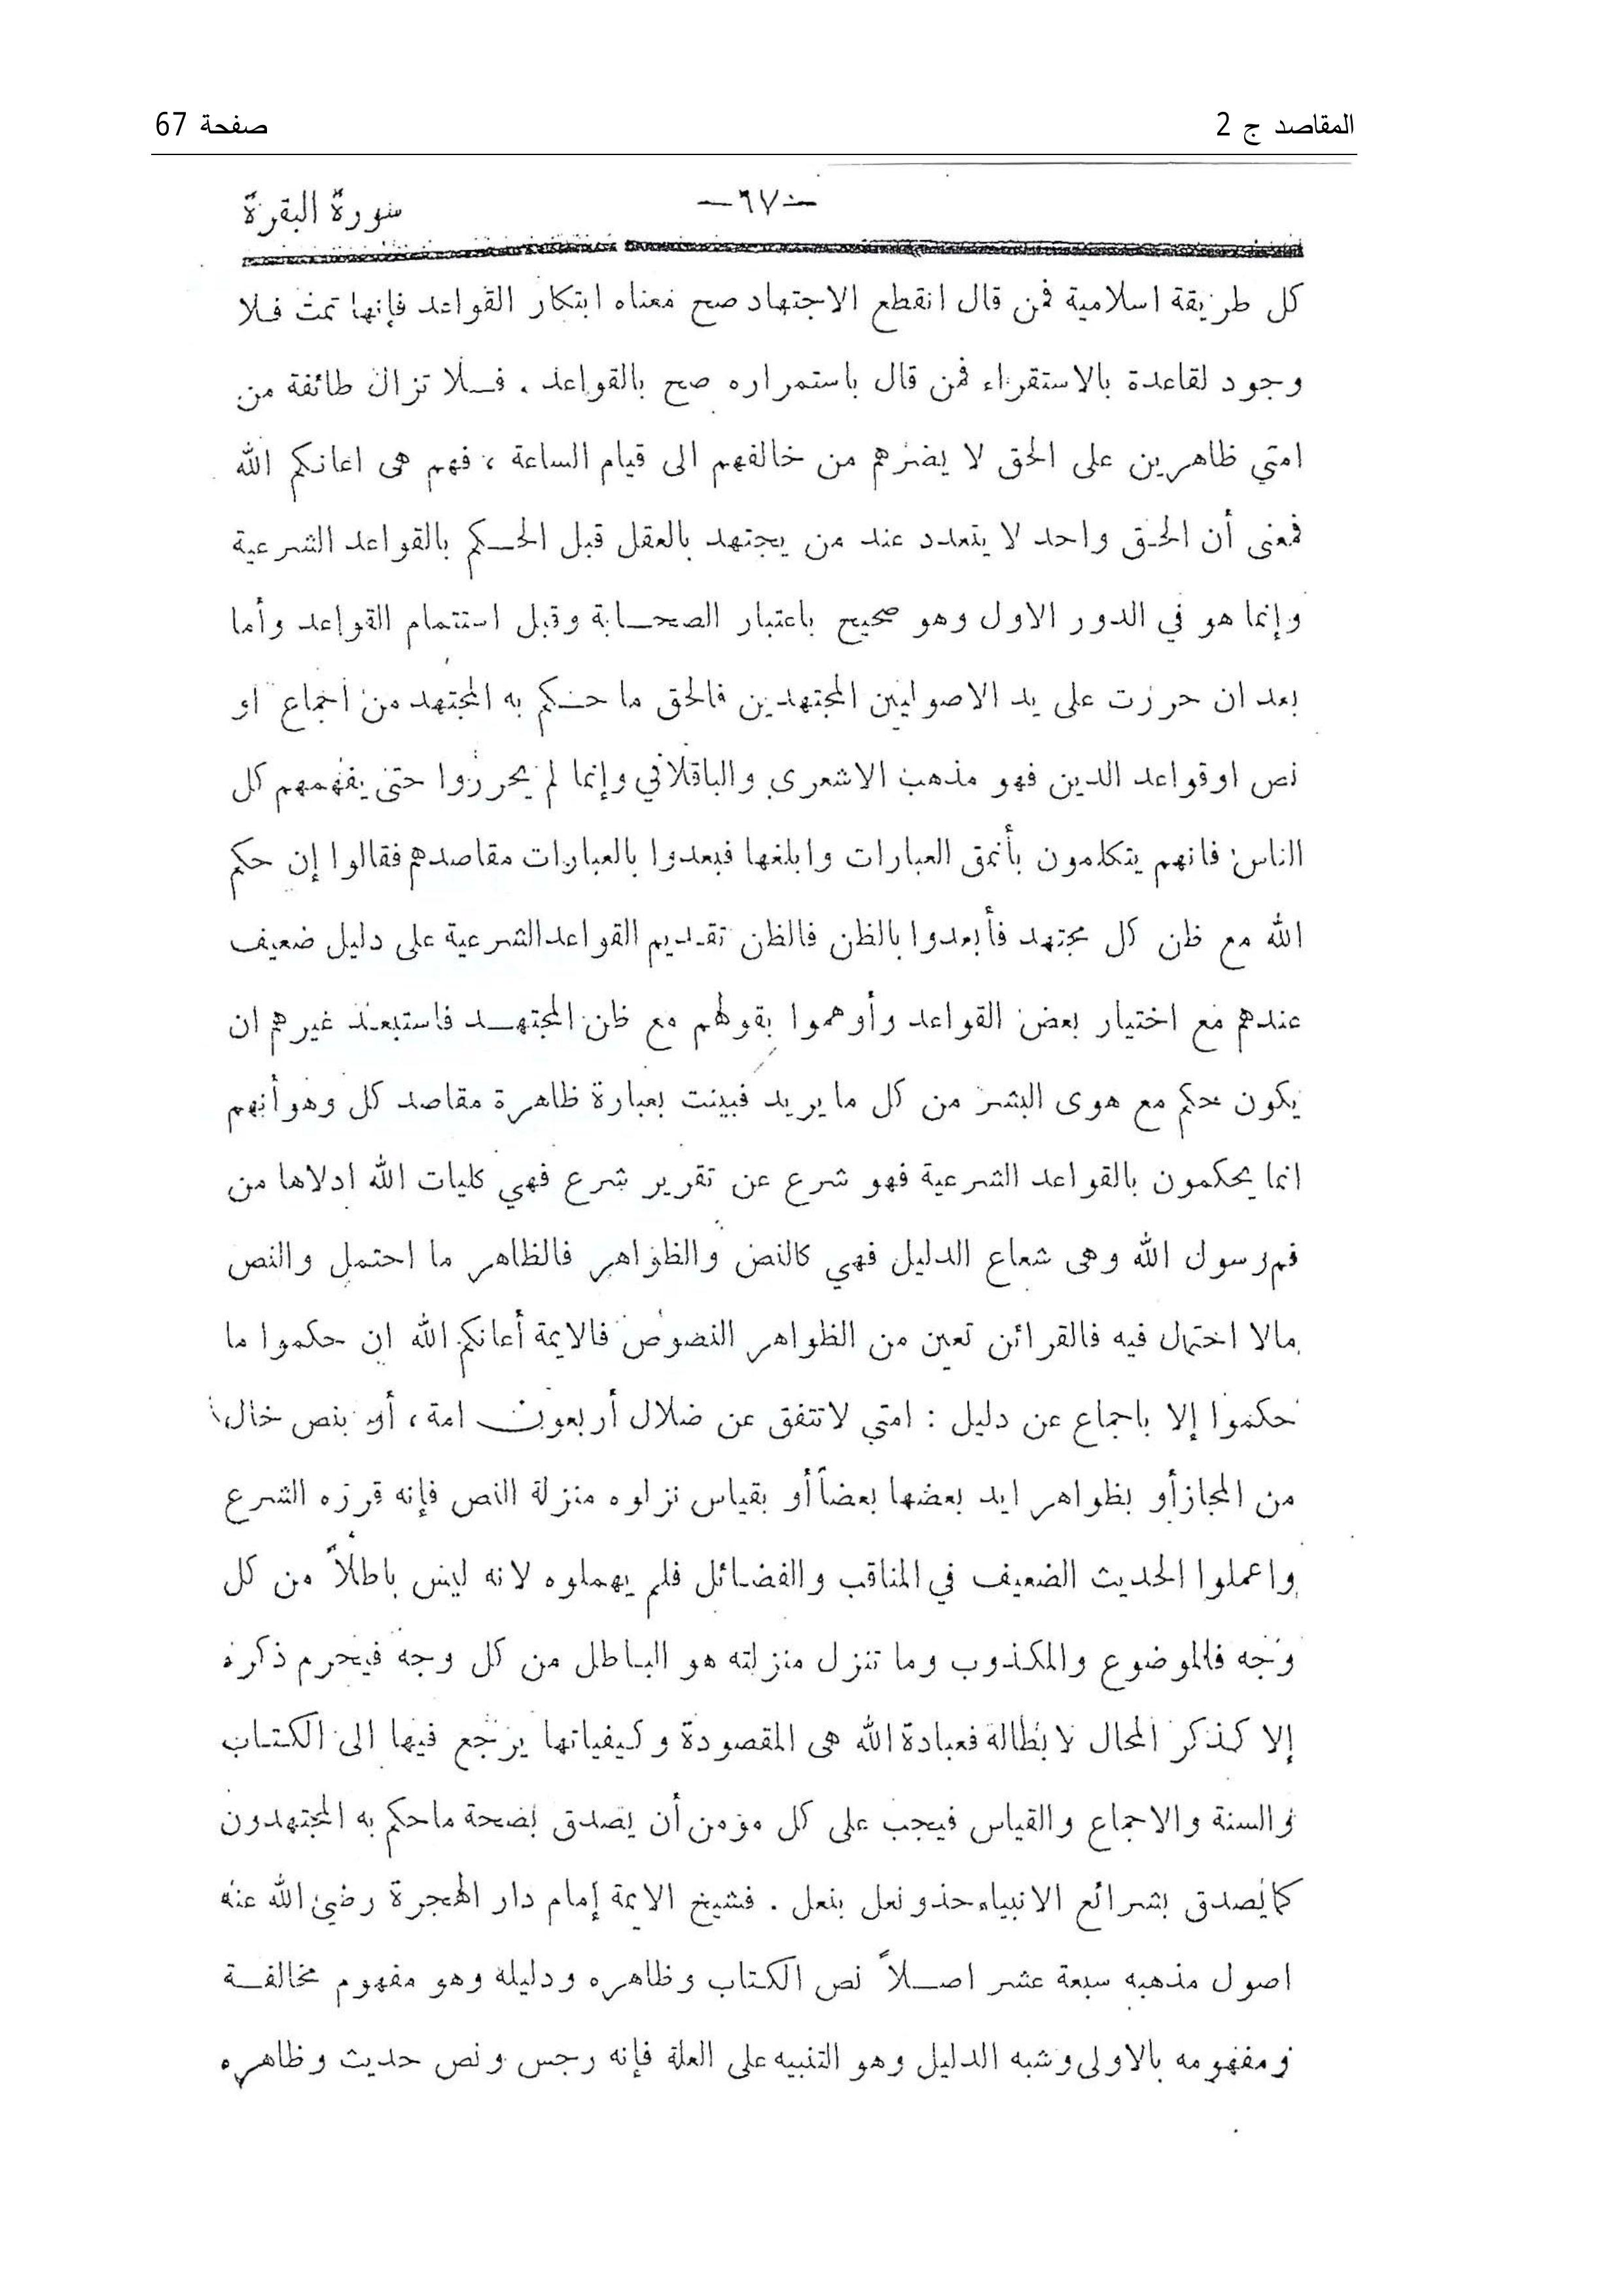 المقاصد ج 2
صفحة 67
—٦٧—
سورة البقرة
كل طريقة اسلامية فمن قال انقطع الاجتهاد صح فمعناه ابتكار القواعد فإنها تمت فلا
وجود لقاعدة بالاستقراء فمن قال باستمراره صح بالقواعد . فلا تزال طائفة من
امتي ظاهرين على الحق لا يضرهم من خالفهم الى قيام الساعة ، فهم هى اعانكم الله
فمعنى أن الحق واحد لا يتعدد عند من يجتهد بالعقل قبل الحكم بالقواعد الشرعية
وإنما هو في الدور الاول وهو صحيح باعتبار الصحابة وقبل استتمام القواعد وأما
بعد ان حرزت على يد الاصوليين المجتهدين فالحق ما حكم به المجتهد من اجماع او
نص اوقواعد الدين فهو مذهب الاشعرى والباقلاني وإنما لم يحرزوا حتى يفهمهم كل
الناس فانهم يتكلمون بأنمق العبارات وابلغها فبعدوا بالعبارات مقاصدهم فقالوا إن حكم
الله مع ظن كل مجتهد فأبعدوا بالظن فالظن تقديم القواعد الشرعية على دليل ضعيف
عندهم مع اختيار بعض القواعد وأوهموا بقولهم مع ظن المجتهد فاستبعد غيرهم ان
يكون حكم مع هوى البشر من كل ما يريد فبينت بعبارة ظاهرة مقاصد كل وهو أنهم
انما يحكمون بالقواعد الشرعية فهو شرع عن تقرير شرع فهي كليات الله ادلاها من
فم رسول الله وهى شعاع الدليل فهي كالنص والظواهر فالظاهر ما احتمل والنص
مالا احتمال فيه فالقرائن تعين من الظواهر النصوص فالايمة أعانكم الله ان حكموا ما
حكموا إلا باجماع عن دليل : امتي لاتتفق عن ضلال أربعون امة ، أو بنص خال
من المجاز أو بظواهر ايد بعضها بعضاً أو بقياس نزلوه منزلة النص فإنه قرره الشرع
واعملوا الحديث الضعيف في المناقب والفضائل فلم يهملوه لانه ليس باطلاً من كل
وجه فالموضوع والمكذوب وما تنزل منزلته هو الباطل من كل وجه فيحرم ذكره
إلا كذكر المحال لابطاله فعبادة الله هى المقصودة وكيفياتها يرجع فيها الى الكتاب
والسنة والاجماع والقياس فيجب على كل مؤمن أن يصدق بصحة ماحكم به المجتهدون
كما يصدق بشرائع الانبياء حذو نعل بنعل . فشيخ الايمة إمام دار الهجرة رضي الله عنه
اصول مذهبه سبعة عشر اصلاً نص الكتاب وظاهره ودليله وهو مفهوم مخالفة
ومفهومه بالاولى وشبه الدليل وهو التنبيه على العلة فإنه رجس ونص حديث وظاهره